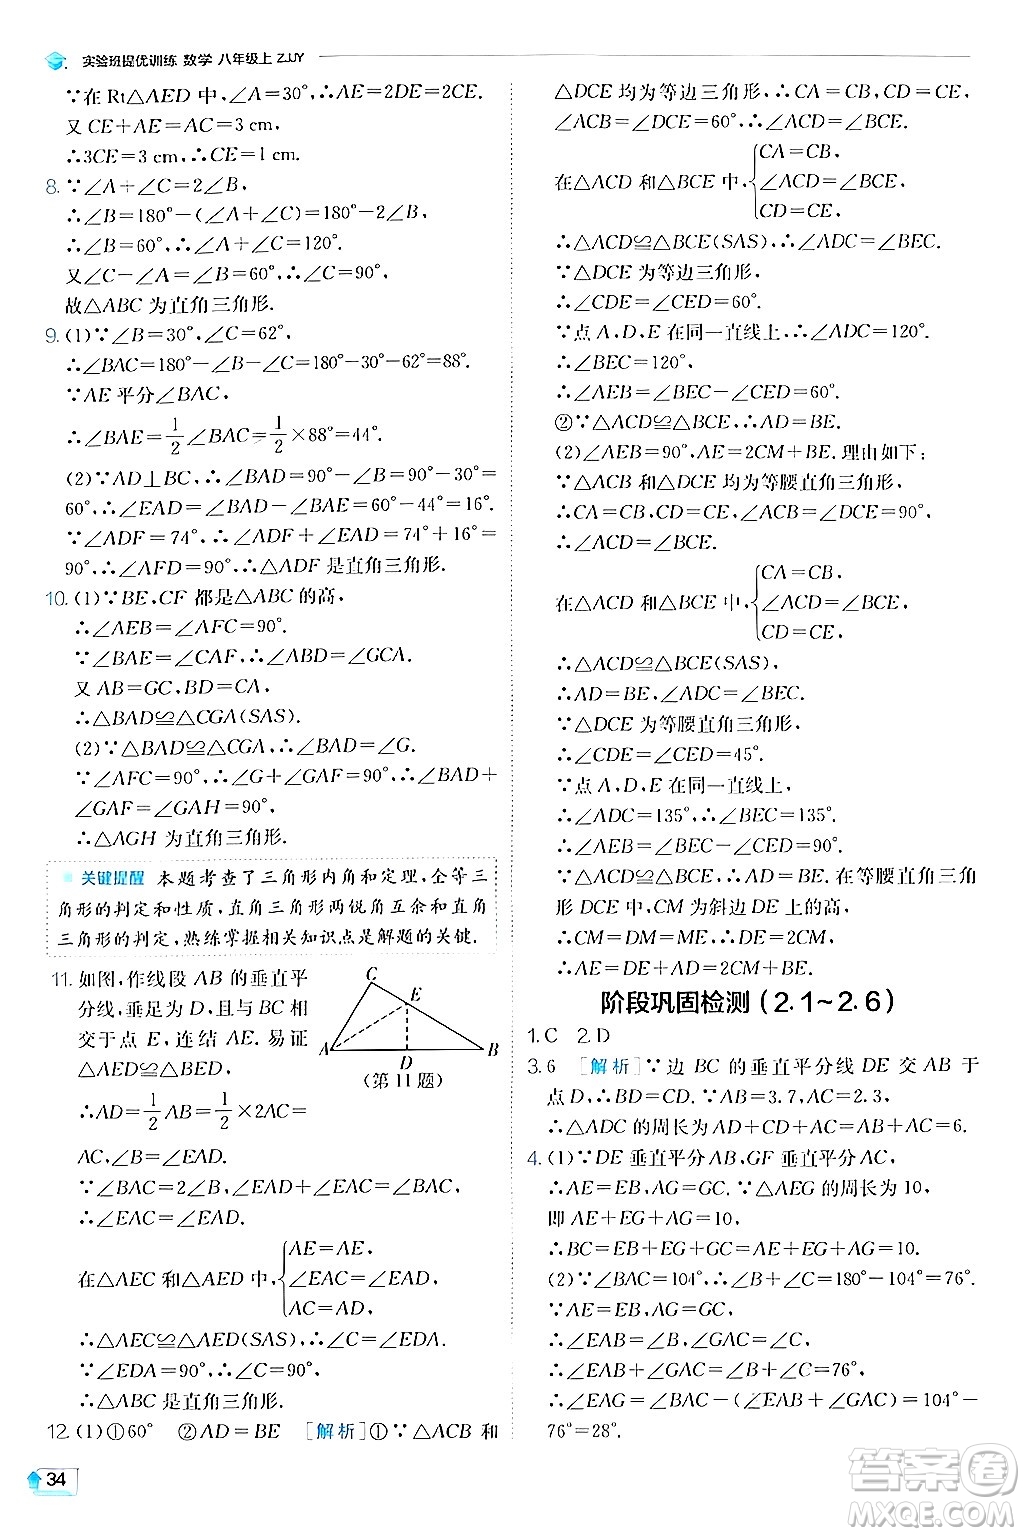 实验班提优训练 数学 八年级上 ZJJY
∵在 Rt△AED 中,∠A=30°,∴AE=2DE=2CE.
又 CE+AE=AC=3 cm,
∴3CE=3 cm,∴CE=1 cm.
8. ∵∠A+∠C=2∠B,
∴∠B=180°-(∠A+∠C)=180°-2∠B,
∴∠B=60°,∴∠A+∠C=120°.
又∠C-∠A=∠B=60°,∴∠C=90°,
故△ABC 为直角三角形.
9. (1)∵∠B=30°,∠C=62°,
∴∠BAC=180°-∠B-∠C=180°-30°-62°=88°.
∵AE 平分∠BAC,
∴∠BAE=1/2∠BAC=1/2×88°=44°.
(2)∵AD⊥BC,∴∠BAD=90°-∠B=90°-30°=
60°,∴∠EAD=∠BAD-∠BAE=60°-44°=16°.
∵∠ADF=74°,∴∠ADF+∠EAD=74°+16°=
90°,∴∠AFD=90°,∴△ADF 是直角三角形.
10. (1)∵BE,CF 都是△ABC 的高,
∴∠AEB=∠AFC=90°.
∵∠BAE=∠CAF,∴∠ABD=∠GCA.
又 AB=GC,BD=CA,
∴△BAD≌△CGA(SAS).
(2)∵△BAD≌△CGA,∴∠BAD=∠G.
∵∠AFC=90°,∴∠G+∠GAF=90°,∴∠BAD+
∠GAF=∠GAH=90°,
∴△AGH 为直角三角形.
关键提醒 本题考查了三角形内角和定理,全等三
角形的判定和性质,直角三角形两锐角互余和直角
三角形的判定,熟练掌握相关知识点是解题的关键.
11. 如图,作线段 AB 的垂直平
分线,垂足为 D,且与 BC 相
交于点 E,连结 AE. 易证
△AED≌△BED,
∴AD=1/2AB=1/2×2AC=
AC,∠B=∠EAD.
C
E
A
D
B
(第 11 题)
∵∠BAC=2∠B,∴∠BAC=2∠EAD,
∴∠EAC=∠EAD.
在△AEC 和△AED 中,{AE=AE,
∠EAC=∠EAD,
AC=AD,
∴△AEC≌△AED(SAS),∴∠C=∠EDA.
∵∠EDA=90°,∴∠C=90°,
∴△ABC 是直角三角形.
12. (1)①60° ②AD=BE [解析]①∵△ACB 和
34
△DCE 均为等边三角形,∴CA=CB,CD=CE,
∠ACB=∠DCE=60°,∴∠ACD=∠BCE.
在△ACD 和△BCE 中,{CA=CB,
∠ACD=∠BCE,
CD=CE,
∴△ACD≌△BCE(SAS),∴∠ADC=∠BEC.
∵△DCE 为等边三角形,
∴∠CDE=∠CED=60°.
∵点 A,D,E 在同一直线上,∴∠ADC=120°.
∴∠BEC=120°,
∴∠AEB=∠BEC-∠CED=60°.
②∵△ACD≌△BCE,∴AD=BE.
(2)∠AEB=90°,AE=2CM+BE. 理由如下:
∵△ACB 和△DCE 均为等腰直角三角形,
∴CA=CB,CD=CE,∠ACB=∠DCE=90°,
∴∠ACD=∠BCE.
在△ACD 和△BCE 中,{CA=CB,
∠ACD=∠BCE,
CD=CE,
∴△ACD≌△BCE(SAS),
∴AD=BE,∠ADC=∠BEC.
∵△DCE 为等腰直角三角形,
∴∠CDE=∠CED=45°.
∵点 A,D,E 在同一直线上,
∴∠ADC=135°,∴∠BEC=135°,
∴∠AEB=∠BEC-∠CED=90°.
∵CD=CE,CM⊥DE,∴DM=ME.在等腰直角三角
形 DCE 中,CM 为斜边 DE 上的高,
∴CM=DM=ME,∴DE=2CM,
∴AE=DE+AD=2CM+BE.
阶段巩固检测(2.1~2.6)
1. C 2. D
3. 6 [解析]∵边 BC 的垂直平分线 DE 交 AB 于
点 D,∴BD=CD.∵AB=3.7,AC=2.3,
∴△ADC 的周长为 AD+CD+AC=AB+AC=6.
4. (1)∵DE 垂直平分 AB,GF 垂直平分 AC,
∴AE=EB,AG=GC.∵△AEG 的周长为 10,
即 AE+EG+AG=10,
∴BC=EB+EG+GC=AE+EG+AG=10.
(2)∵∠BAC=104°,∴∠B+∠C=180°-104°=76°.
∵AE=EB,AG=GC,
∴∠EAB=∠B,∠GAC=∠C,
∴∠EAB+∠GAC=∠B+∠C=76°,
∴∠EAG=∠BAC-(∠EAB+∠GAC)=104°-
76°=28°.
答案圈
MXQE.COM